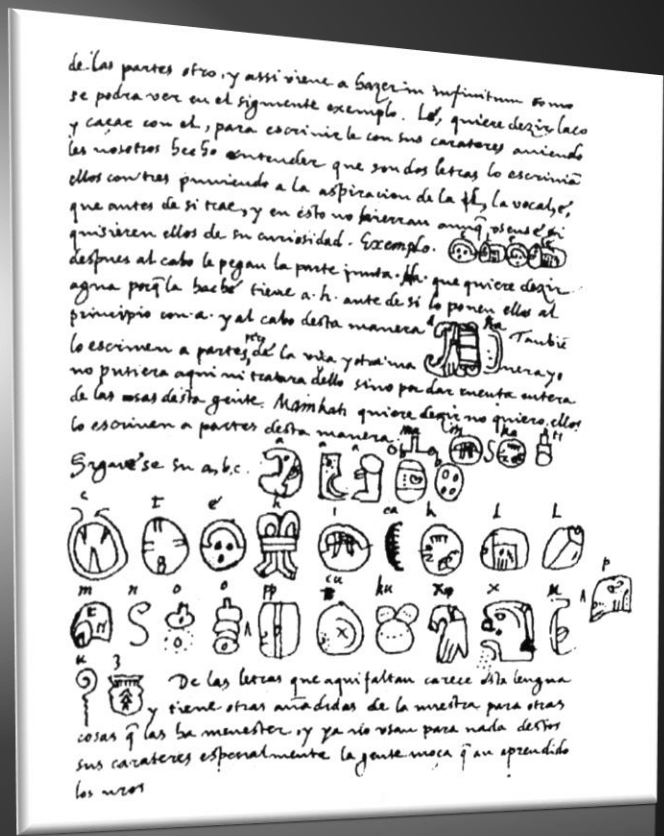 de las partes otro, y assi viene a hazer in infinitum como
se podra ver en el siguiente exemplo. Lé, quiere dezir laço
y caçar con el, para escrivirle con sus carateres aviendo
les nosotros hecho entender que son dos letras lo escrivian
ellos con tres puniendo a la aspiracion de la l, la vocal, é,
que antes de si trae, y en esto no hierran aunq̃ usense si
quisieren ellos de su curiosidad. Exemplo.
despues al cabo le pegan la parte junta. Ha. que quiere dezir
agua porq̃ la haché tiene a.h. ante de si lo ponen ellos al
principio con a. y al cabo desta manera
a ha
Tambie
lo escriven a partes, de la una y otra ma nera yo
no pusiera aqui ni tratara dello sino por dar cuenta entera
de las cosas desta gente. Mainkati quiere dezir no quiero, ellos
lo escriven a partes desta manera.
ma i n ka ti
Siguese su a, b, c.
a a a b b
c t é h i ca k l l
m n o o pp cu ku x x u p
u z
De las letras que aqui faltan carece esta lengua
y tiene otras añadidas de la nuestra para otras
cosas q̃ las ha menester, y ya no usan para nada destos
sus carateres especialmente la gente moça q̃ an aprendido
los nros